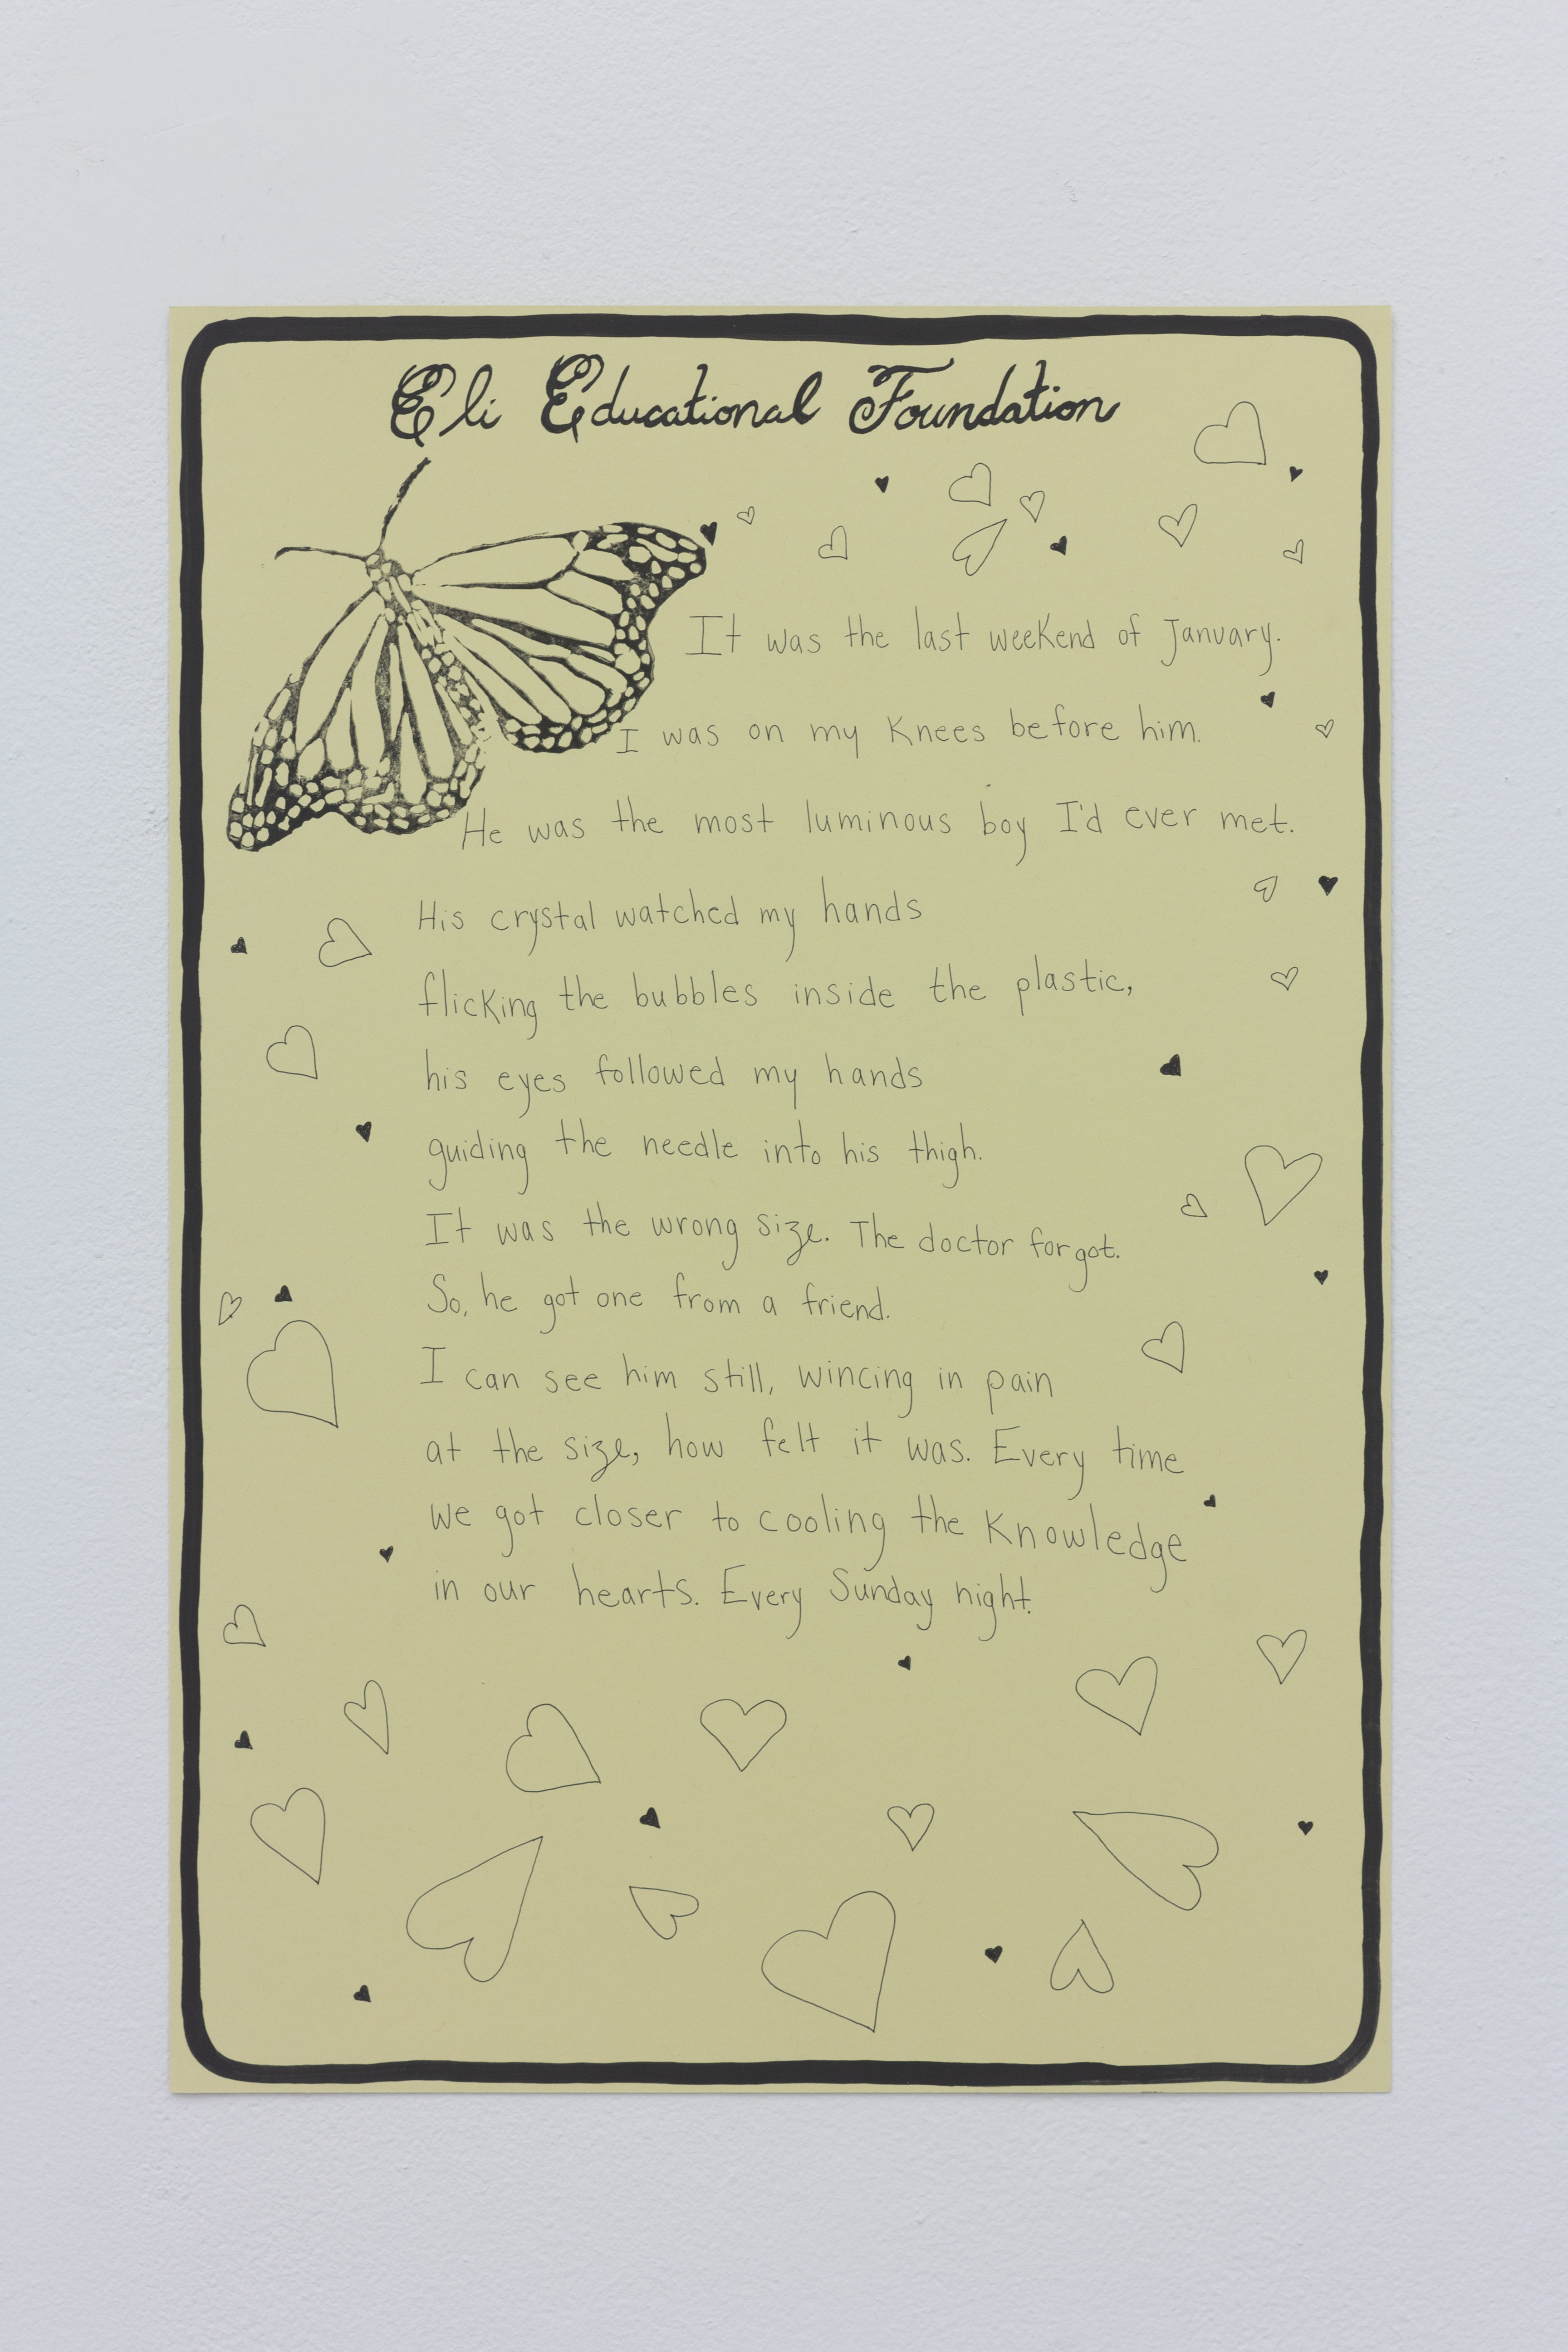 Eli Educational Foundation
It was the last weekend of January.
I was on my knees before him.
He was the most luminous boy I'd ever met.
His crystal watched my hands
flicking the bubbles inside the plastic,
his eyes followed my hands
guiding the needle into his thigh.
It was the wrong size. The doctor forgot.
So, he got one from a friend.
I can see him still, wincing in pain
at the size, how felt it was. Every time
we got closer to cooling the knowledge
in our hearts. Every Sunday night.